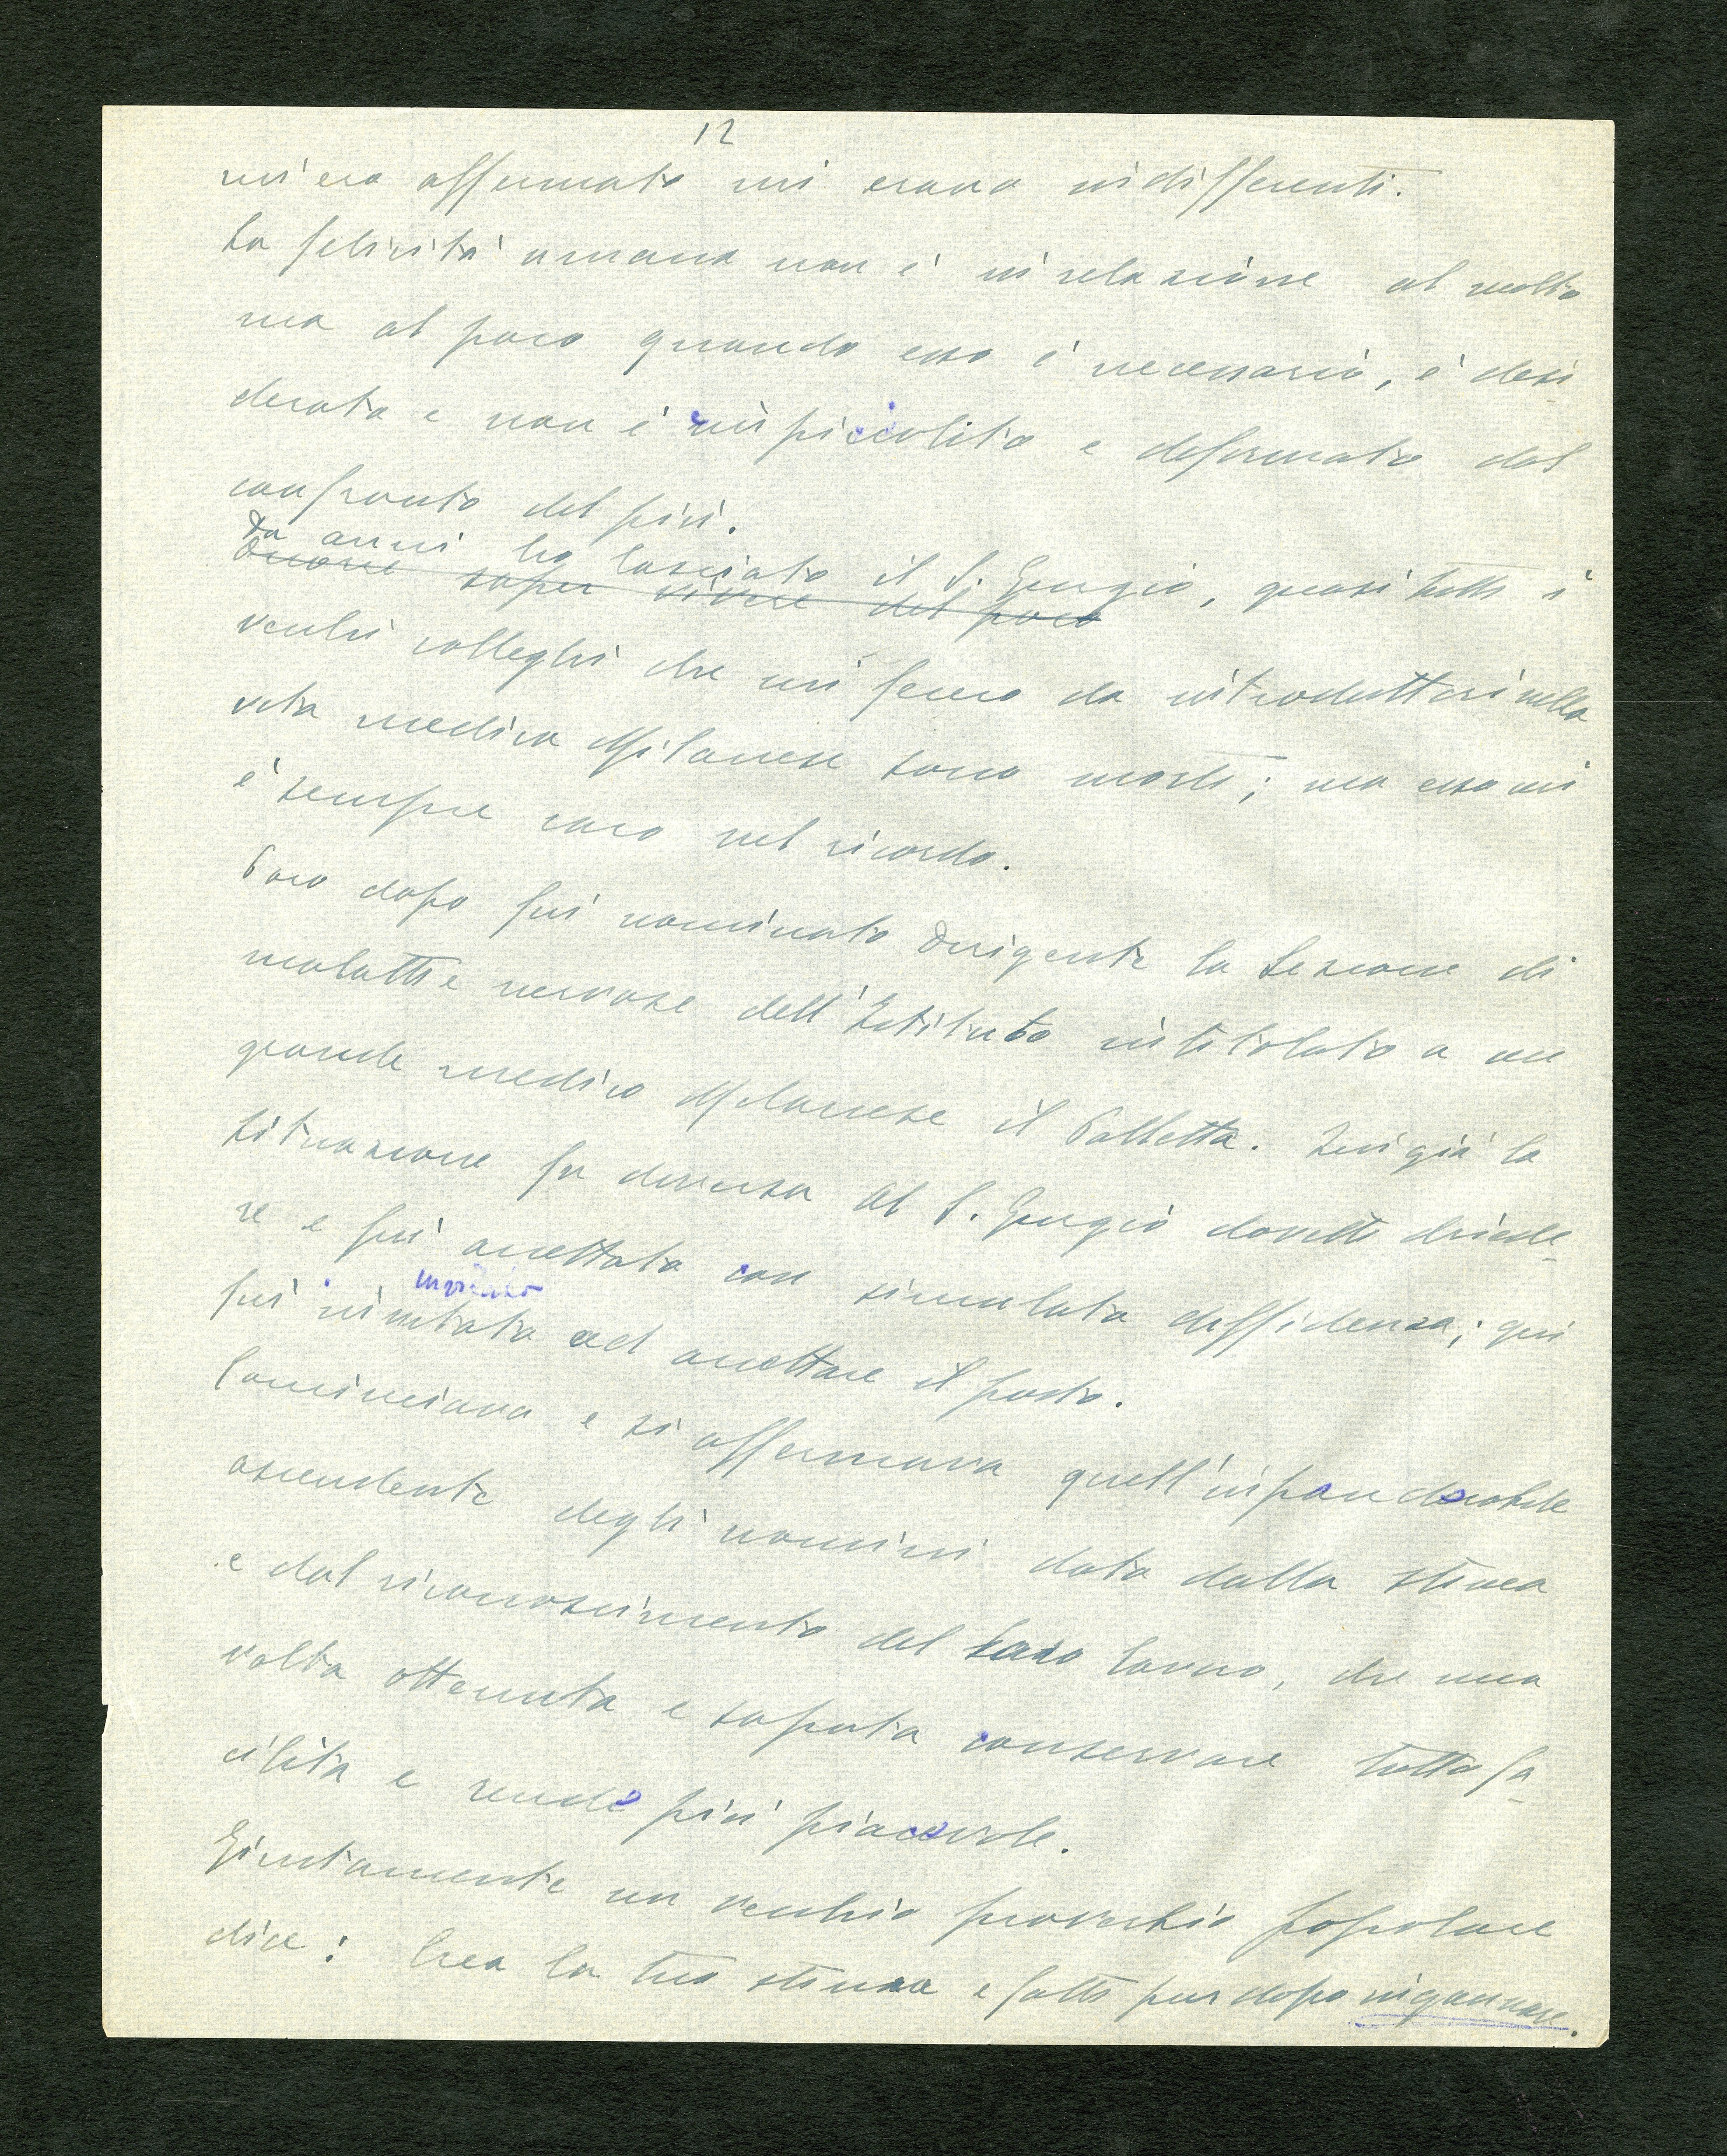 12
mi ero affermato mi erano indifferenti.
La felicità umana non è in relazione al molto
ma al poco quando esso è necessario, è desi-
derato e non è inpiccolito e deformato dal
confronto del più.
Da anni ho lasciato il S. Giorgio, quasi tutti i
saper vivere del poco
vecchi colleghi che mi fecero da introduttori nella
vita medica Milanese sono morti; ma esso mi
è sempre caro nel ricordo.
Poco dopo fui nominato dirigente la Sezione di
malattie nervose dell'Istituto intitolato a un
grande medico Milanese il Palletta. Quì già la
situazione fu diversa al S. Giorgio dovetti chiede-
re e fui accettato con simulata diffidenza; qui
invitato
fui invitato ad accettare il posto.
Cominciava e si affermava quell'inponderabile
ascendente degli uomini dato dalla stima
e dal riconoscimento del loro lavoro, che una
volta ottenuta e saputa conservare tutto fa-
cilita e rende più piacevole.
Giustamente un vecchio proverbio popolare
dice: Crea la tua stima e fatti pur dopo ingannare.